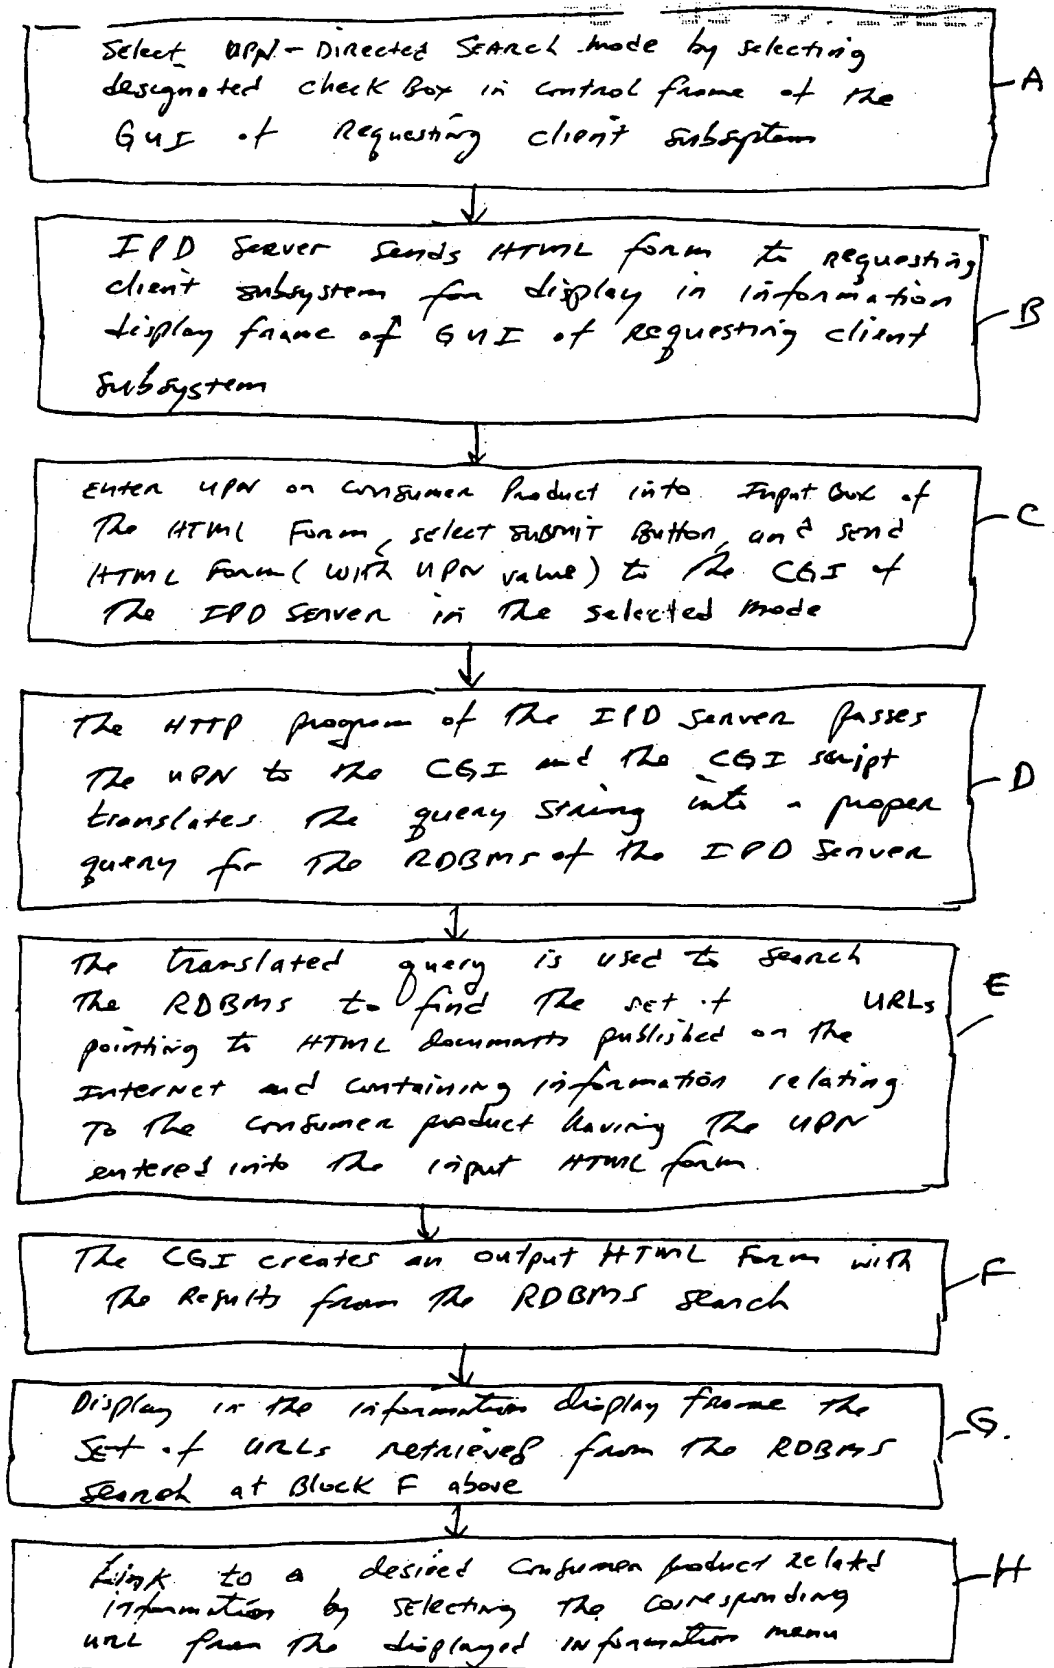 Select UPN-Directed SEARCH mode by selecting
designated check Box in control frame of the
GUI of Requesting client subsystem
A
IPD Server sends HTML form to requesting
client subsystem for display in information
display frame of GUI of Requesting client
subsystem
B
Enter UPN on Consumer Product into Input Box of
The HTML Form, select SUBMIT Button, and send
HTML Form (with UPN value) to the CGI of
The IPD Server in the selected mode
C
The HTTP program of the IPD Server passes
The UPN to the CGI and the CGI script
translates the query string into a proper
query for the RDBMS of the IPD Server
D
The translated query is used to search
The RDBMS to find the set of URLs
pointing to HTML documents published on the
Internet and containing information relating
To the consumer product having the UPN
entered into the input HTML form.
E
The CGI creates an output HTML Form with
The Results from the RDBMS search
F
Display in the information display frame the
Set of URLs retrieved from the RDBMS
Search at Block F above
G.
Link to a desired Consumer product related
information by selecting the corresponding
URL from the displayed information menu
H